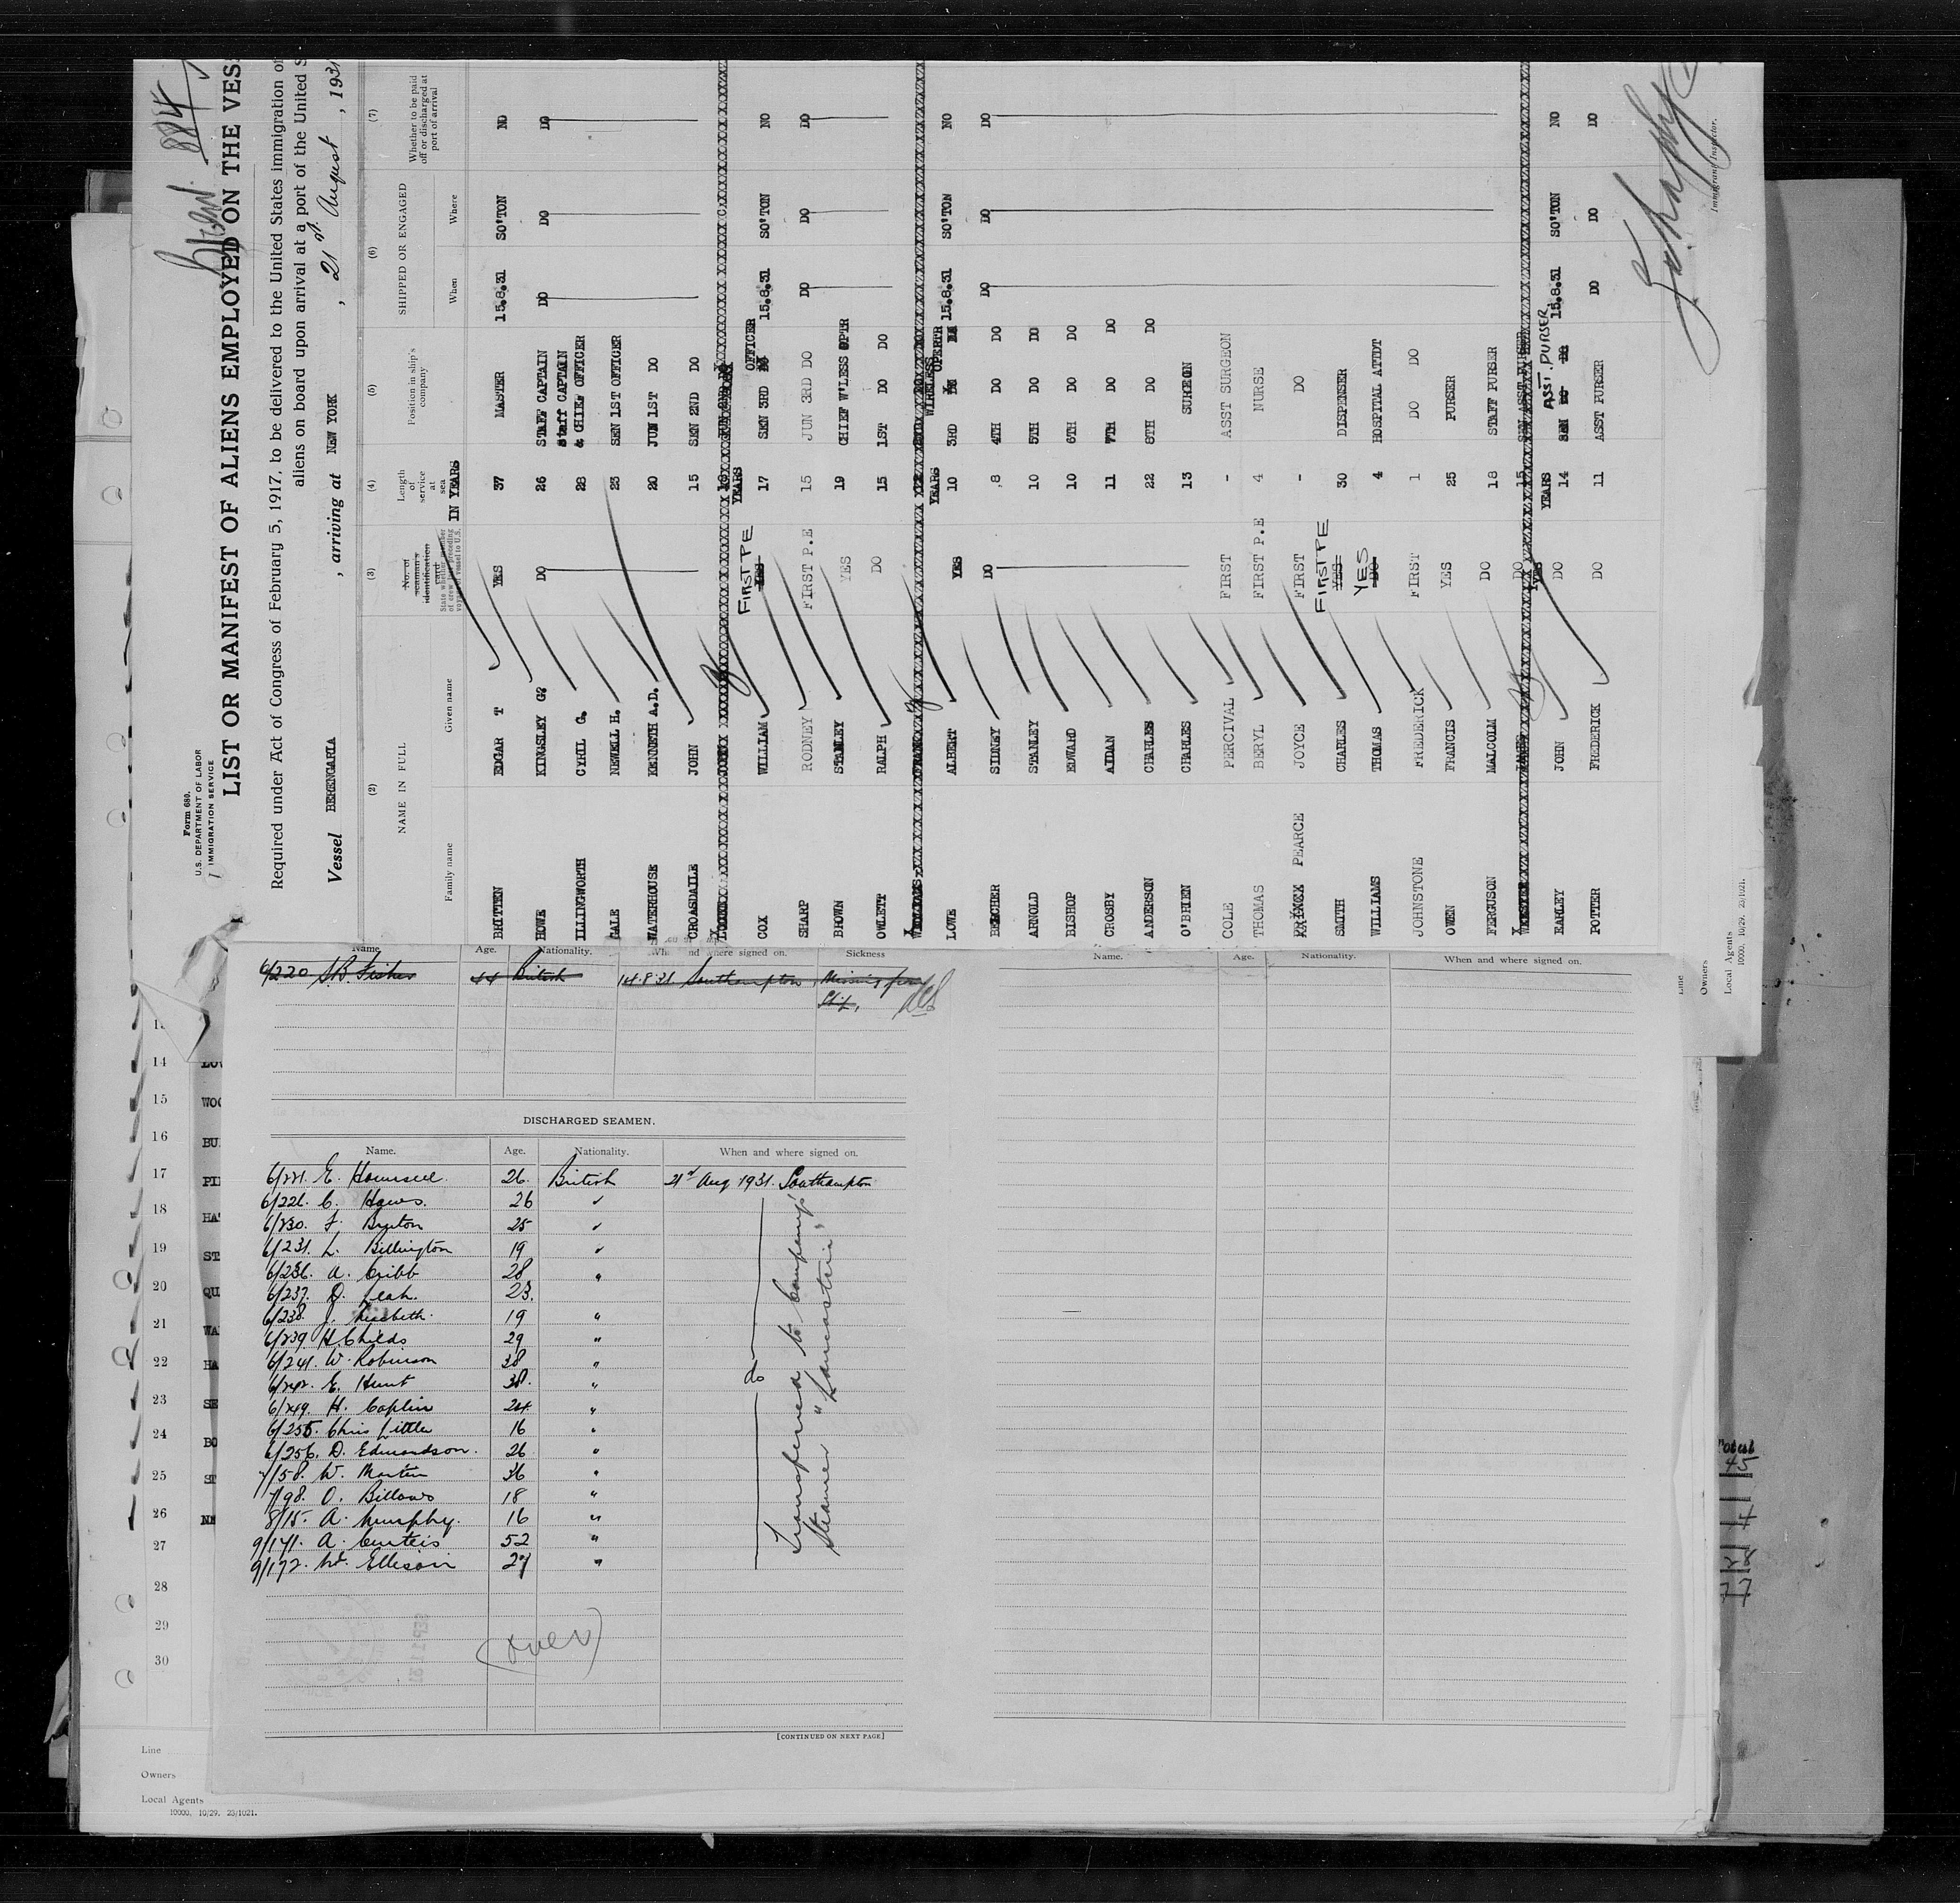 Form 680.
U.S. DEPARTMENT OF LABOR
IMMIGRATION SERVICE
884
LIST OR MANIFEST OF ALIENS EMPLOYED ON THE VES
Required under Act of Congress of February 5, 1917, to be delivered to the United States immigration of
aliens on board upon arrival at a port of the United S
Vessel BERENGARIA , arriving at NEW YORK , 21st August , 1931
(2) (3) (4) (5) (6) (7)
NAME IN FULL
Family name Given name
No. of seaman's identification card
Length of service at sea
IN YEARS
Position in ship's company
SHIPPED OR ENGAGED
When Where
Whether to be paid off or discharged at port of arrival
BRITTEN EDGAR T YES 37 MASTER 15.8.31 SO'TON NO
HOWE KINGSLEY G. DO 26 STAFF CAPTAIN DO DO DO
Staff CAPTAIN
ILLINGWORTH CYRIL G. 28 & CHIEF OFFICER
GALE NEWELL H. 23 SEN 1ST OFFICER
WATERHOUSE KENNETH A.D. 20 JUN 1ST DO
CROASDAILE JOHN 15 SEN 2ND DO
YEARS
COX WILLIAM FIRST PE YES 17 SEN 3RD OFFICER 15.8.31 SO'TON NO
SHARP RODNEY FIRST P.E 15 JUN 3RD DO DO DO DO
BROWN STANLEY YES 19 CHIEF W'LESS OPTR
OWLETT RALPH DO 15 1ST DO DO
YEARS WIRELESS OPERTR
LOWE ALBERT YES 10 3RD 15.8.31 SO'TON NO
BERCHER SIDNEY DO 8 4TH DO DO DO DO DO
ARNOLD STANLEY 10 5TH DO DO
BISHOP EDWARD 10 6TH DO DO
CROSBY AIDAN 11 7TH DO DO
ANDERSON CHARLES 22 8TH DO DO
O'BRIEN CHARLES 13 SURGEON
COLE PERCIVAL FIRST - ASST SURGEON
THOMAS BERYL FIRST P.E 4 NURSE
PEARCE JOYCE FIRST - DO
SMITH CHARLES FIRST PE YES 30 DISPENSER
WILLIAMS THOMAS YES DO 4 HOSPITAL ATTDT
JOHNSTONE FREDERICK FIRST 1 DO DO
OWEN FRANCIS YES 25 PURSER
FERGUSON MALCOLM DO 18 STAFF PURSER
YEARS ASST. PURSER
EARLEY JOHN DO 14 SEN 15.8.31 SO'TON NO
POTTER FREDERICK DO 11 ASST PURSER DO DO DO
Immigrant Inspector.
Line
Owners
Local Agents
10000. 10/29. 23/1021.
Name. Age. Nationality. When and where signed on. Sickness
6/220. S.B. Fisher 44 British 14.8.31. Southampton Missing from
Ship.
DISCHARGED SEAMEN.
Name. Age. Nationality. When and where signed on.
6/221. E. Hounsell. 26. British 21st Aug 1931. Southampton
6/226. C. Haws. 26
6/230. F. Bruton 25
6/231. L. Billington 19
6/236. A. Cribb 28 "
6/237. D. Leah. 23.
6/238. J. Nesbeth. 19 "
6/239 H. Childs 29 "
6/241. W. Robinson 38 "
6/242. E. Hunt 38. " do
6/249. H. Coplin 24. "
6/255. Chris Little 16 "
6/256. D. Edmondson. 26 "
7/58. W. Martin 36 "
7/98. O. Billows 18 "
8/15. A. Murphy. 16 "
9/171. A. Curteis 52 "
9/172. W. Ellison 27 "
Transferred to Company's
Steamer "Lancastria"
(over)
[CONTINUED ON NEXT PAGE]
Name. Age. Nationality. When and where signed on.
14
15 WOO
16 BU
17 PI
18 HA
19 ST
20 QU
21 WA
22 HA
23 SE
24 BO
25 ST
26
27
28
29
30
Line
Owners
Local Agents
10000. 10/29. 23/1021.
Total
45
4
28
77